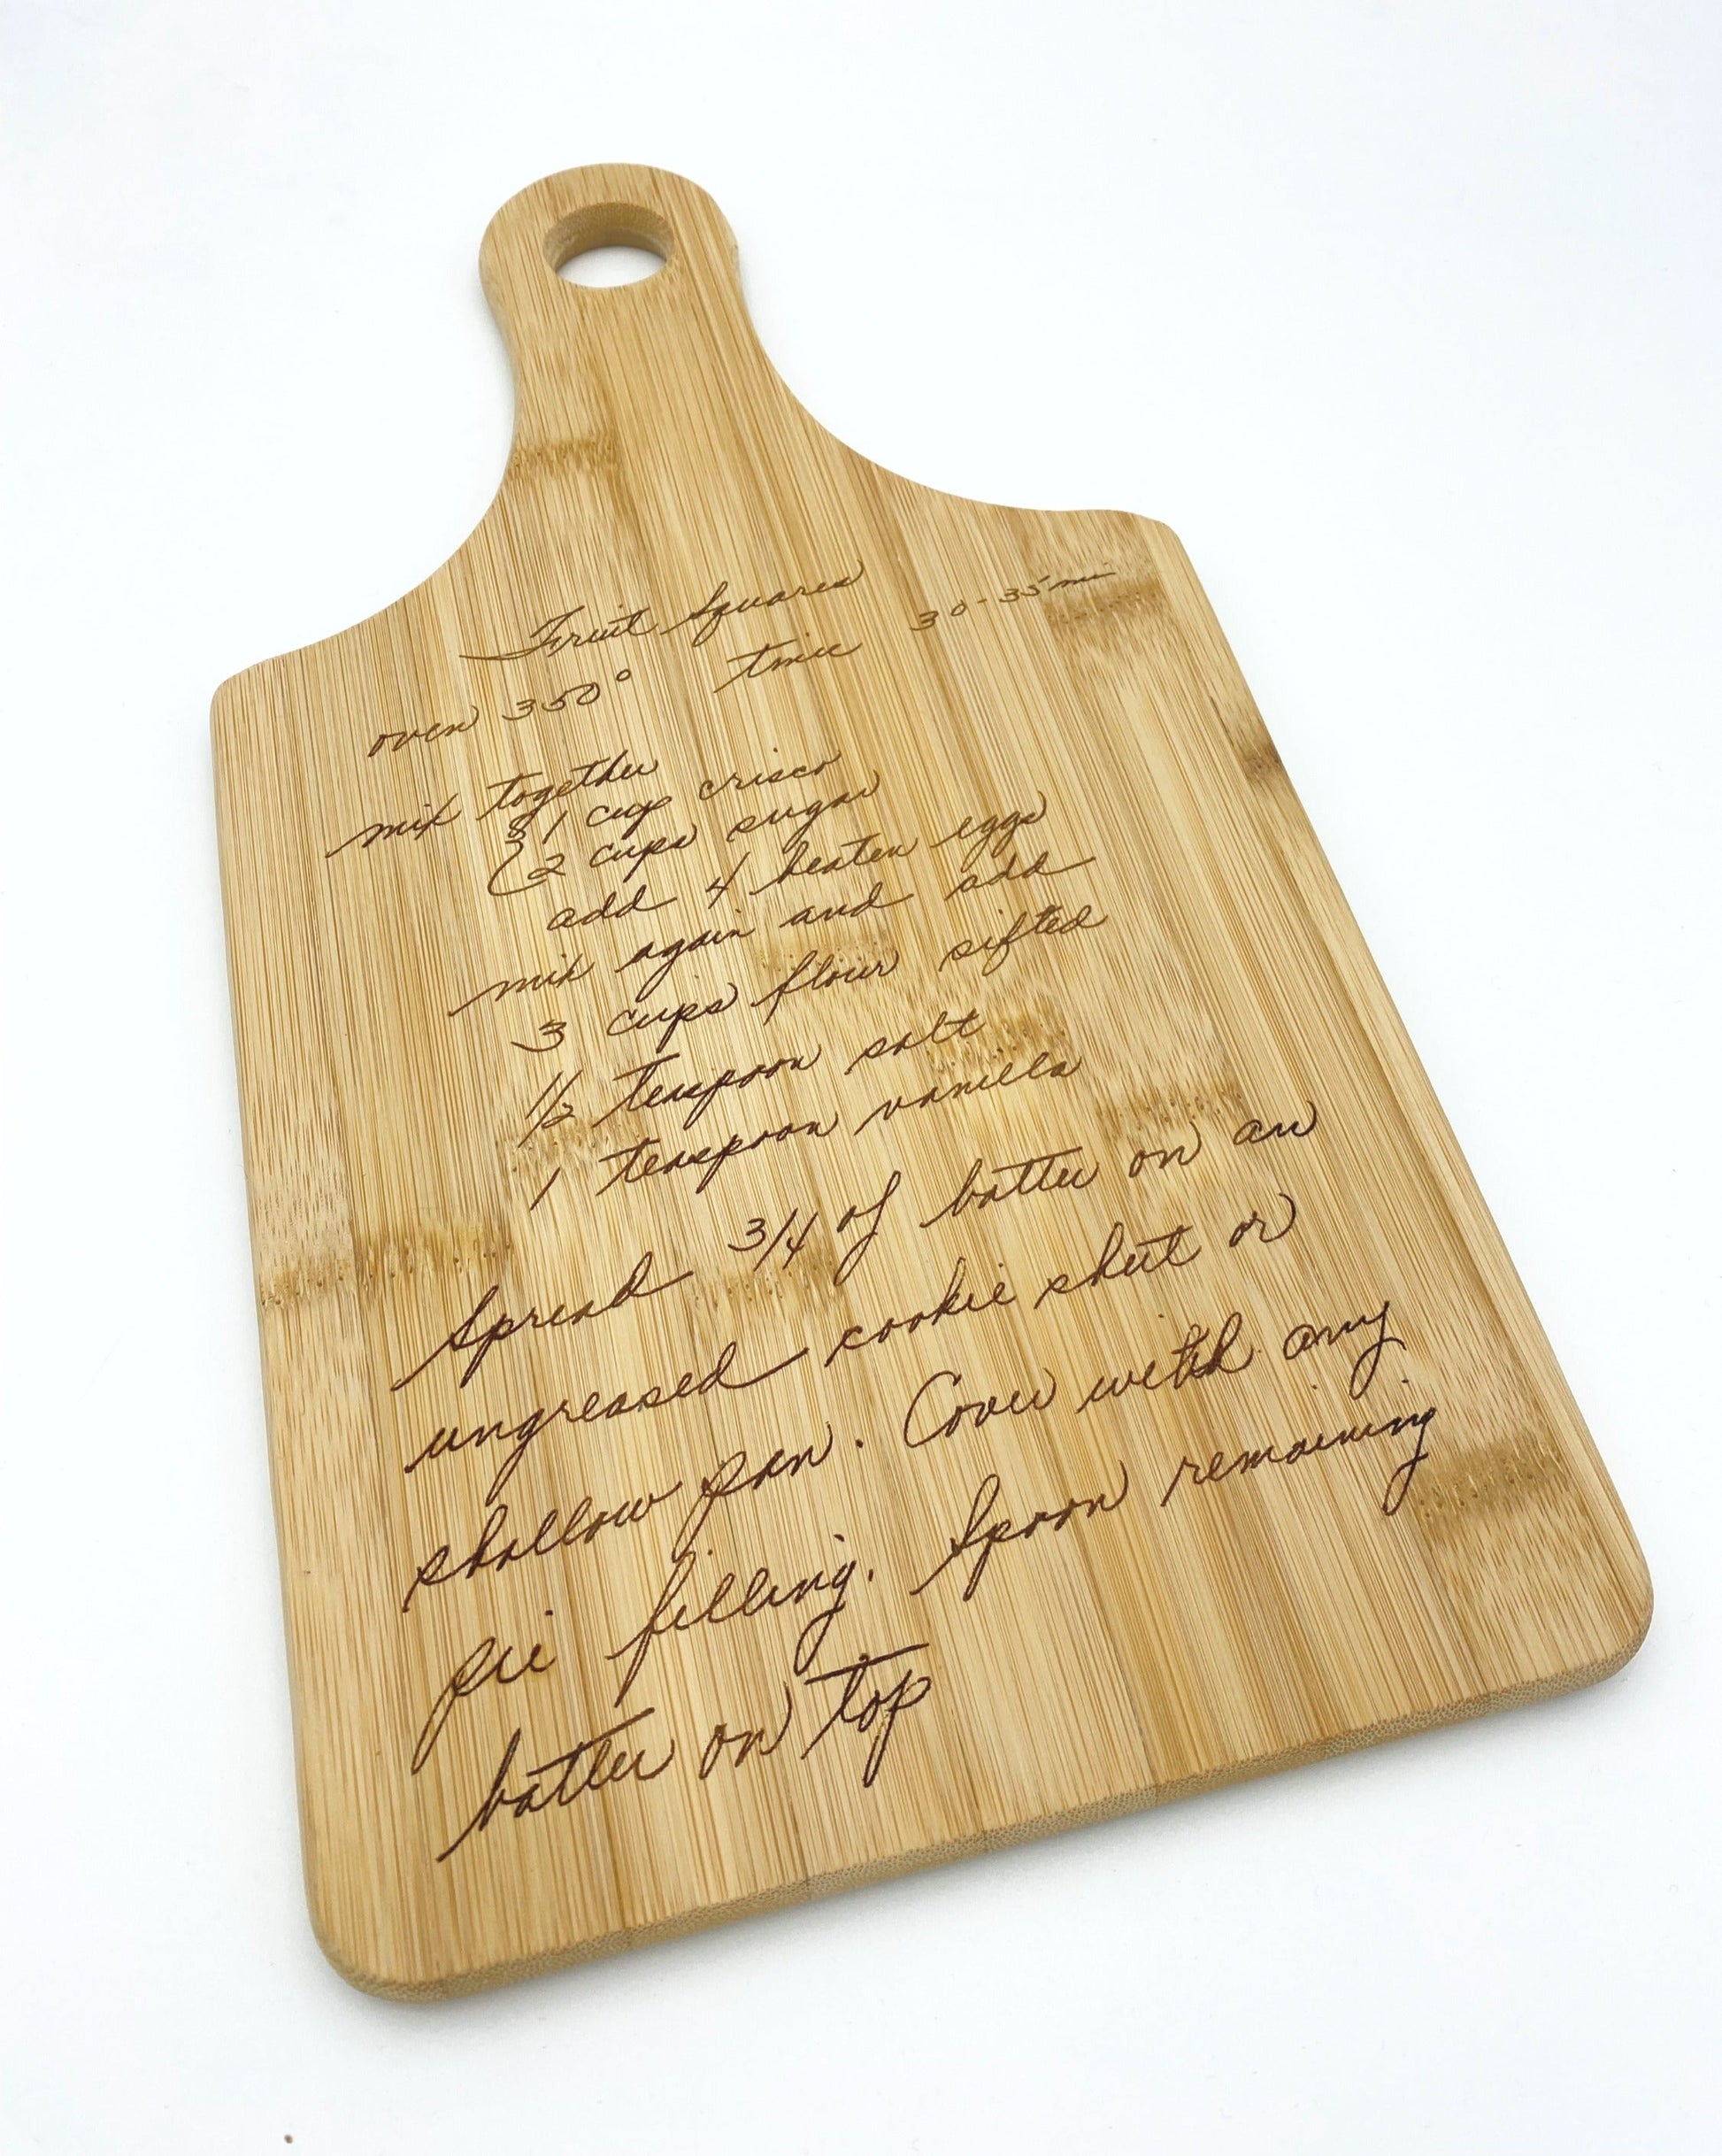 Fruit Squares
oven 350° time 30-35 min
mix together
{ 1 cup crisco
2 cups sugar
add 4 beaten eggs
mix again and add
3 cups flour sifted
1/2 teaspoon salt
1 teaspoon vanilla
Spread 3/4 of batter on an
ungreased cookie sheet or
shallow pan. Cover with any
pie filling. Spoon remaining
batter on top